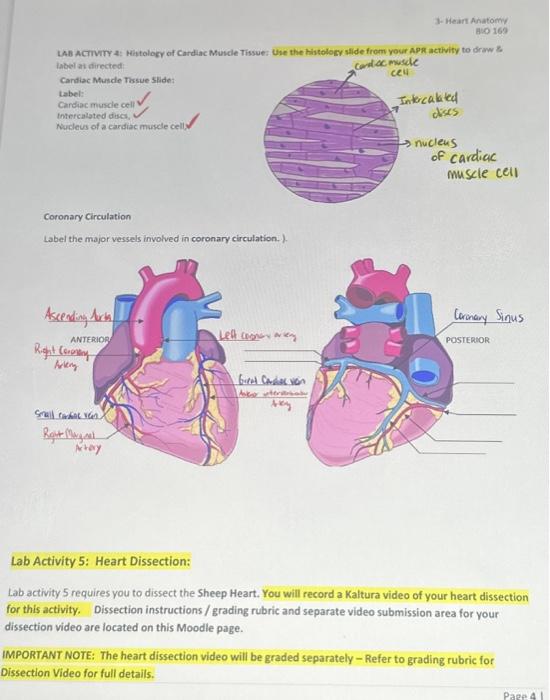 3- Heart Anatomy
BIO 169
LAB ACTIVITY 4: Histology of Cardiac Muscle Tissue: Use the histology slide from your APR activity to draw &
label as directed:
Cardiac Muscle Tissue Slide:
Label:
Cardiac muscle cell
Intercalated discs,
Nucleus of a cardiac muscle cell
cardiac muscle
cell
Intercalated
discs
nucleus
of cardiac
muscle cell
Coronary Circulation
Label the major vessels involved in coronary circulation. ).
Ascending
ANTERIOR
Right Coronary
Artery
Small cardiac vein
Right Marginal
Artery
Left coronary artery
Great Cardiac vein
Coronary Sinus
POSTERIOR
Lab Activity 5: Heart Dissection:
Lab activity 5 requires you to dissect the Sheep Heart. You will record a Kaltura video of your heart dissection
for this activity. Dissection instructions / grading rubric and separate video submission area for your
dissection video are located on this Moodle page.
IMPORTANT NOTE: The heart dissection video will be graded separately – Refer to grading rubric for
Dissection Video for full details.
Page 4